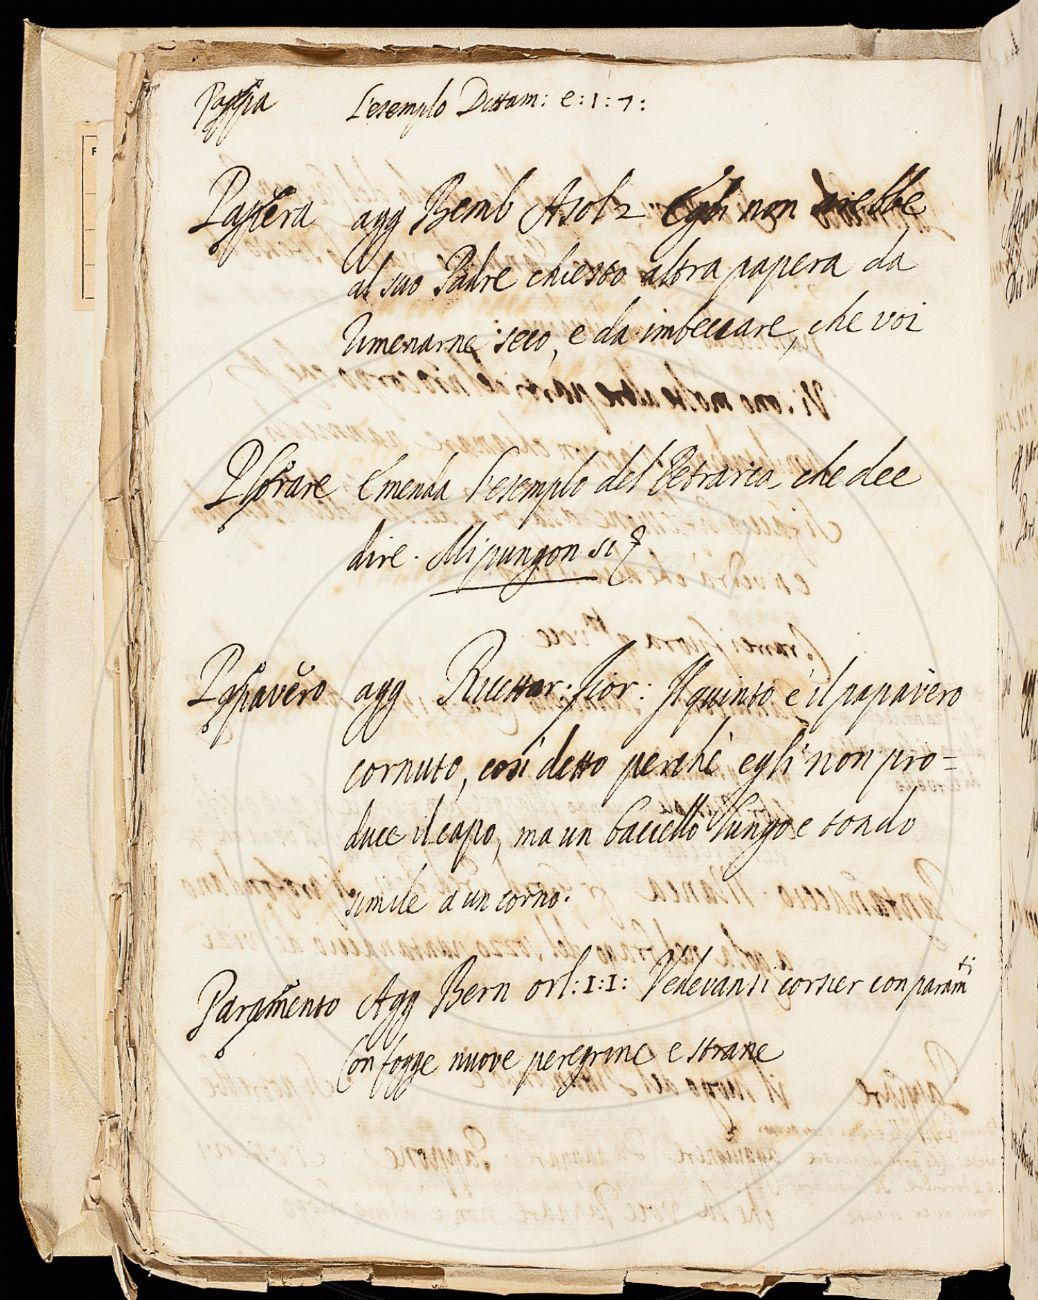 Pappa L'esemplo Dittam: e: 1: 7:
Papera agg Bemb Asol 2 Egli non avrebbe
al suo Padre chiesto altra papera da
rimenarne seco, e da imbeccare, che voi
Emenda l'esemplo del Petrarca che dee
dire. Mi pungon sì &
Papavero agg Ricettar: fior: Il quinto è il papavero
cornuto, così detto perchè egli non pro=
duce il capo, ma un baccello lungo e tondo
simile a un corno.
Paramento Agg Bern orl: 1: 1: Vedevansi corsier con paramti
Con fogge nuove peregrine e strane